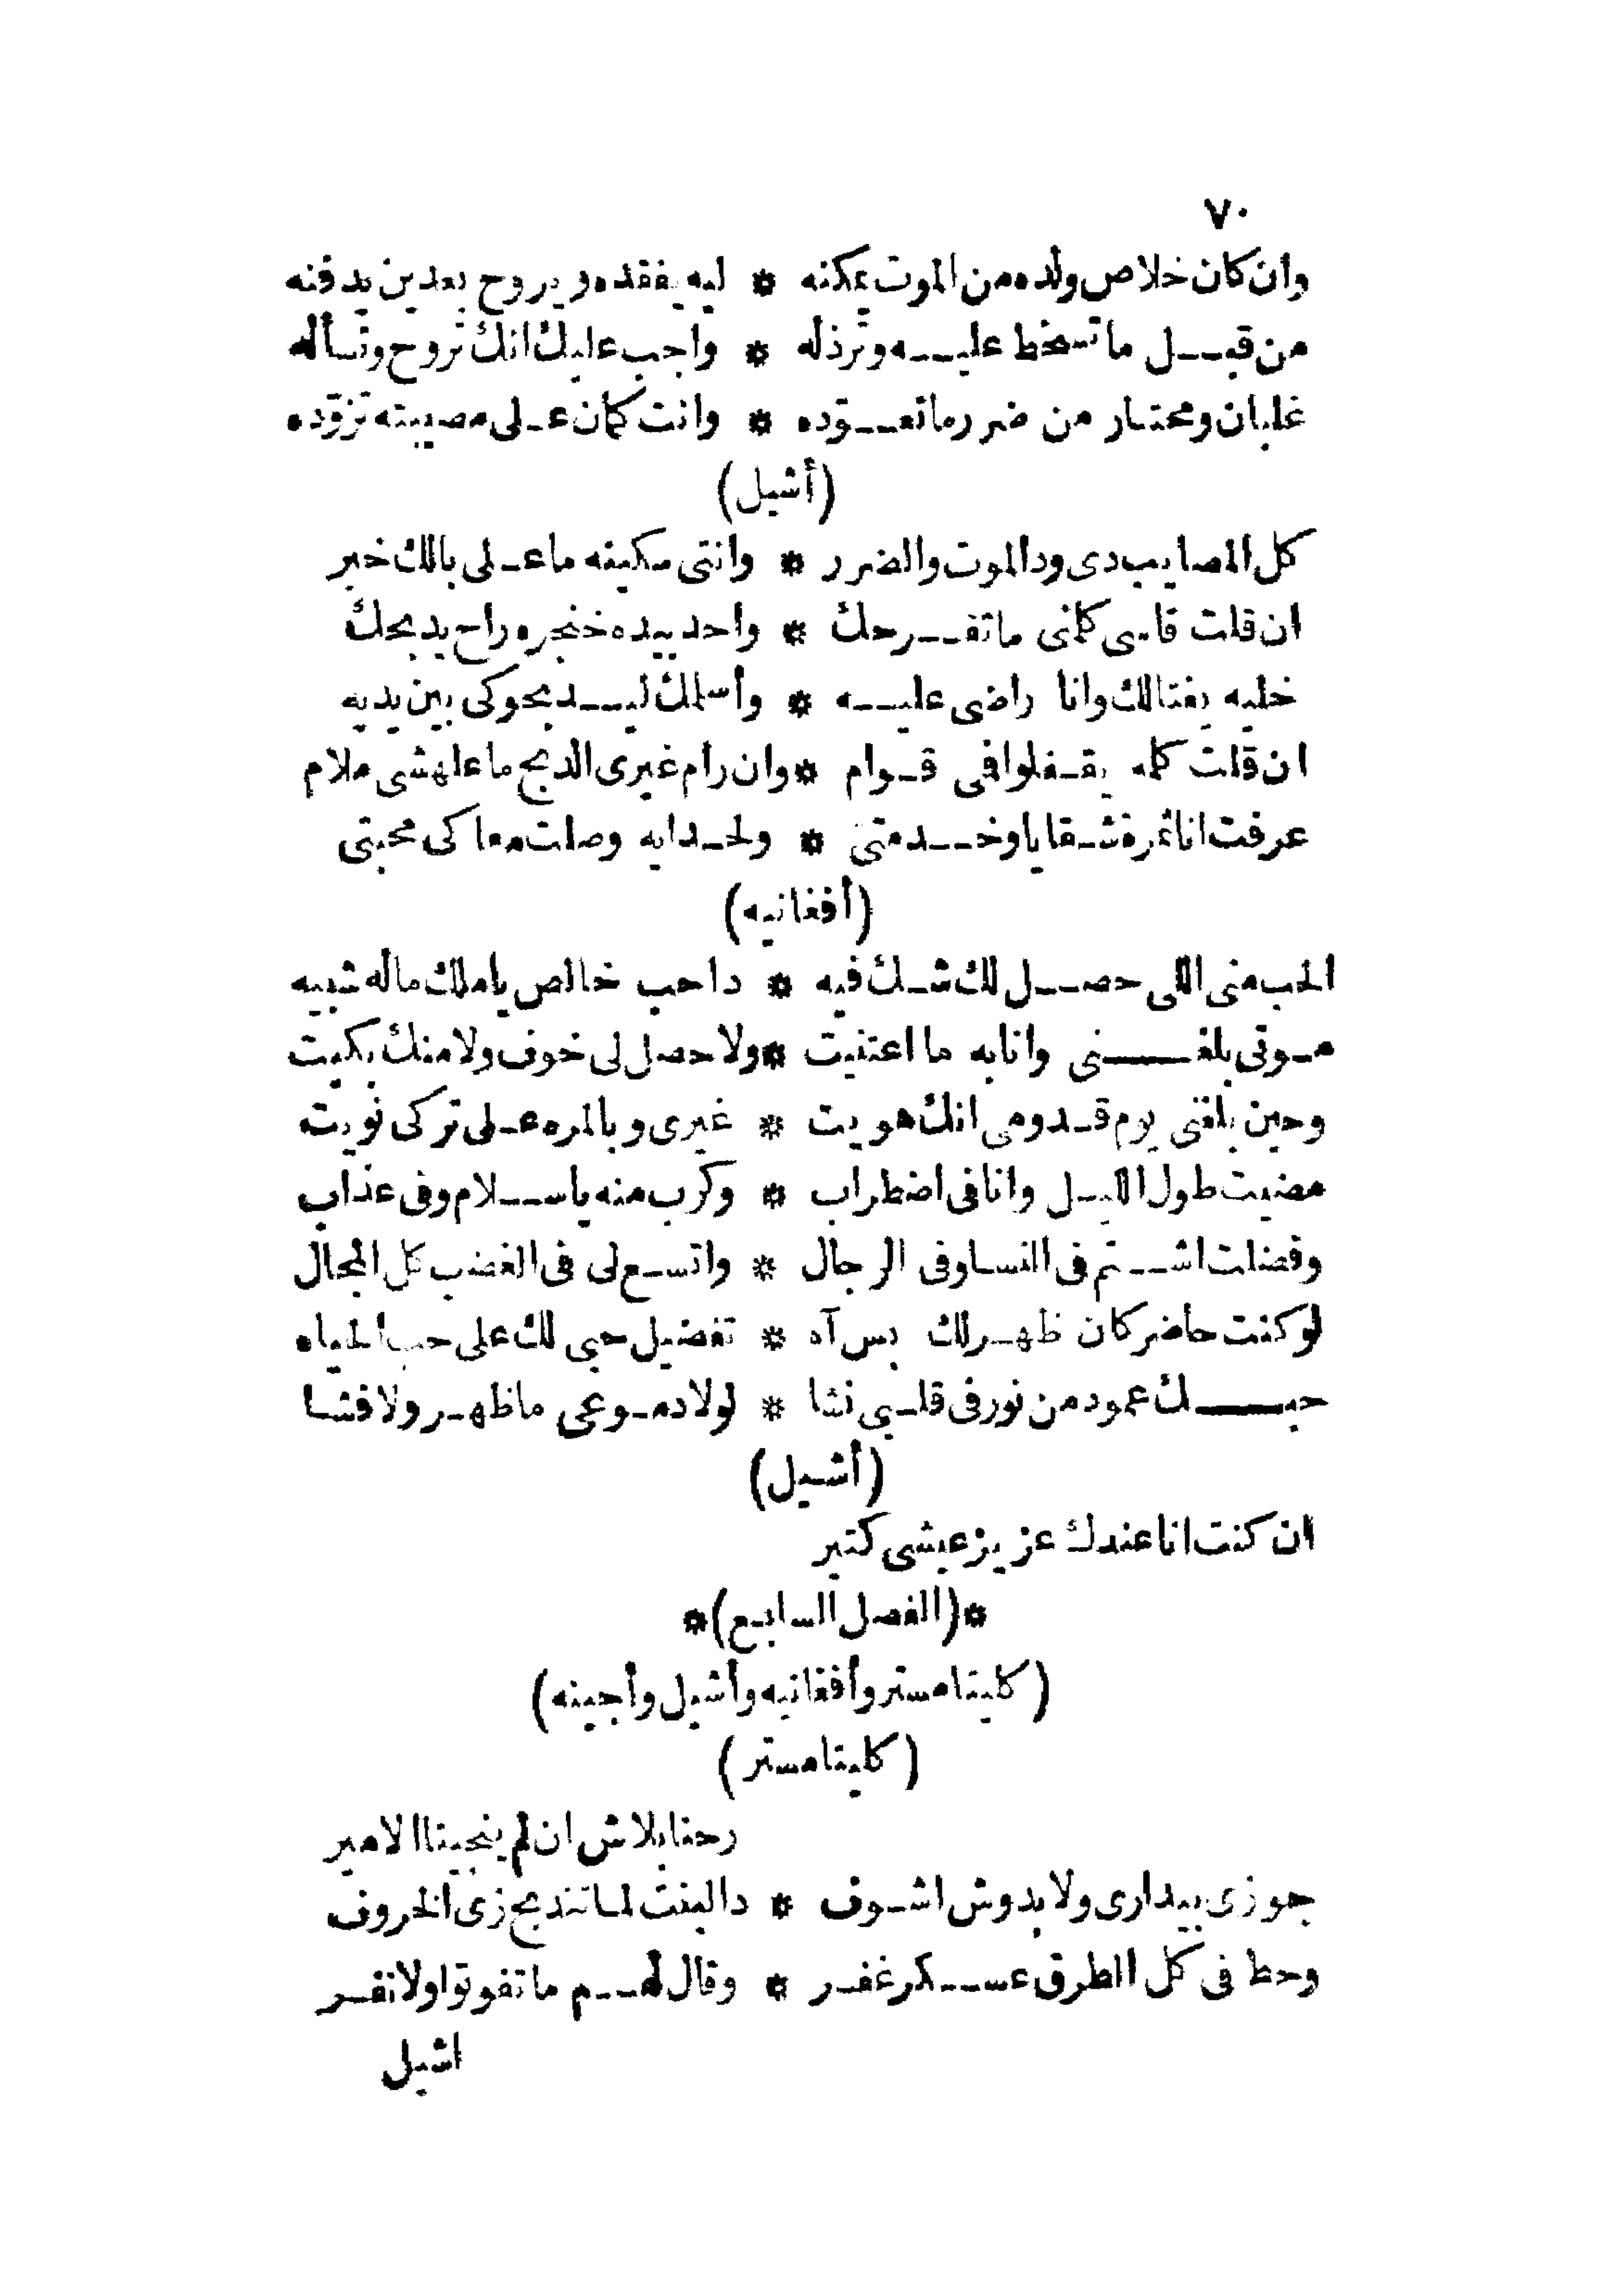 ٧٠
وان كان خلاص ولده من الموت يمكنه * ليه يفقده ويروح بعدين يدفنه
من قبل ما تسخط عليه وترذله * واجب عليك انك تروح وتسأله
غلبان ومحتار من ضرر ما تعوّده * وانت كمان على مصيبته تزوّده
(أشيل)
كل المصايب دى ودا الموت والضرر * وانتى مسكينه ما على بالك خبر
ان قلت قاسى كلمنى ما تفرحك * واحد بيده خنجره راح يدبحك
خليه يغتالك وانا راضى عليه * وأسلمك ليد بحوكى بين يديه
ان قلت كله يقفلوا فى قوام * وان رام غيرى الدبح ما علهشى ملام
عرفت انا ثمرة شقايا وخدمتى * ولحد ايه وصلت معاكى محبتى
(أفغانيه)
الحب منى اللى حصل لك شك فيه * دا حب خالص يا ملك ماله شبيه
موتى بلغنى وانا به ما اعتنيت * ولا حصل لى خوف ولا منك بكيت
وحين بلغنى يوم قدومى انك هويت * غيرى وبالمره على تركى نويت
مضيت طول الليل وانا فى اضطراب * وكرب منه يا سلام وفى عذاب
وفضلت اشتم فى النسا وفى الرجال * واتسع لى فى الغضب كل المجال
لو كنت حاضر كان ظهر لك بس آه * تفضيل حبى لك على حب الحياه
حبك عمود من نور فى قلبى نشا * لولا دموعى ما ظهر ولا فشا
(أشيل)
ان كنت انا عندك عزيز عيشى كتير
*(الفصل السابع)*
(كليتامستر وأفغانيه وأشيل وأجينه)
(كليتامستر)
رحنا بلاش ان لم ينجينا الامير
جوزى بيدارى ولا بدوش اشوف * دا البنت لما تندبح زى الخروف
وحط فى كل الطرق عسكر غفر * وقال لهم ما تفوتوا ولا نفر
اشيل